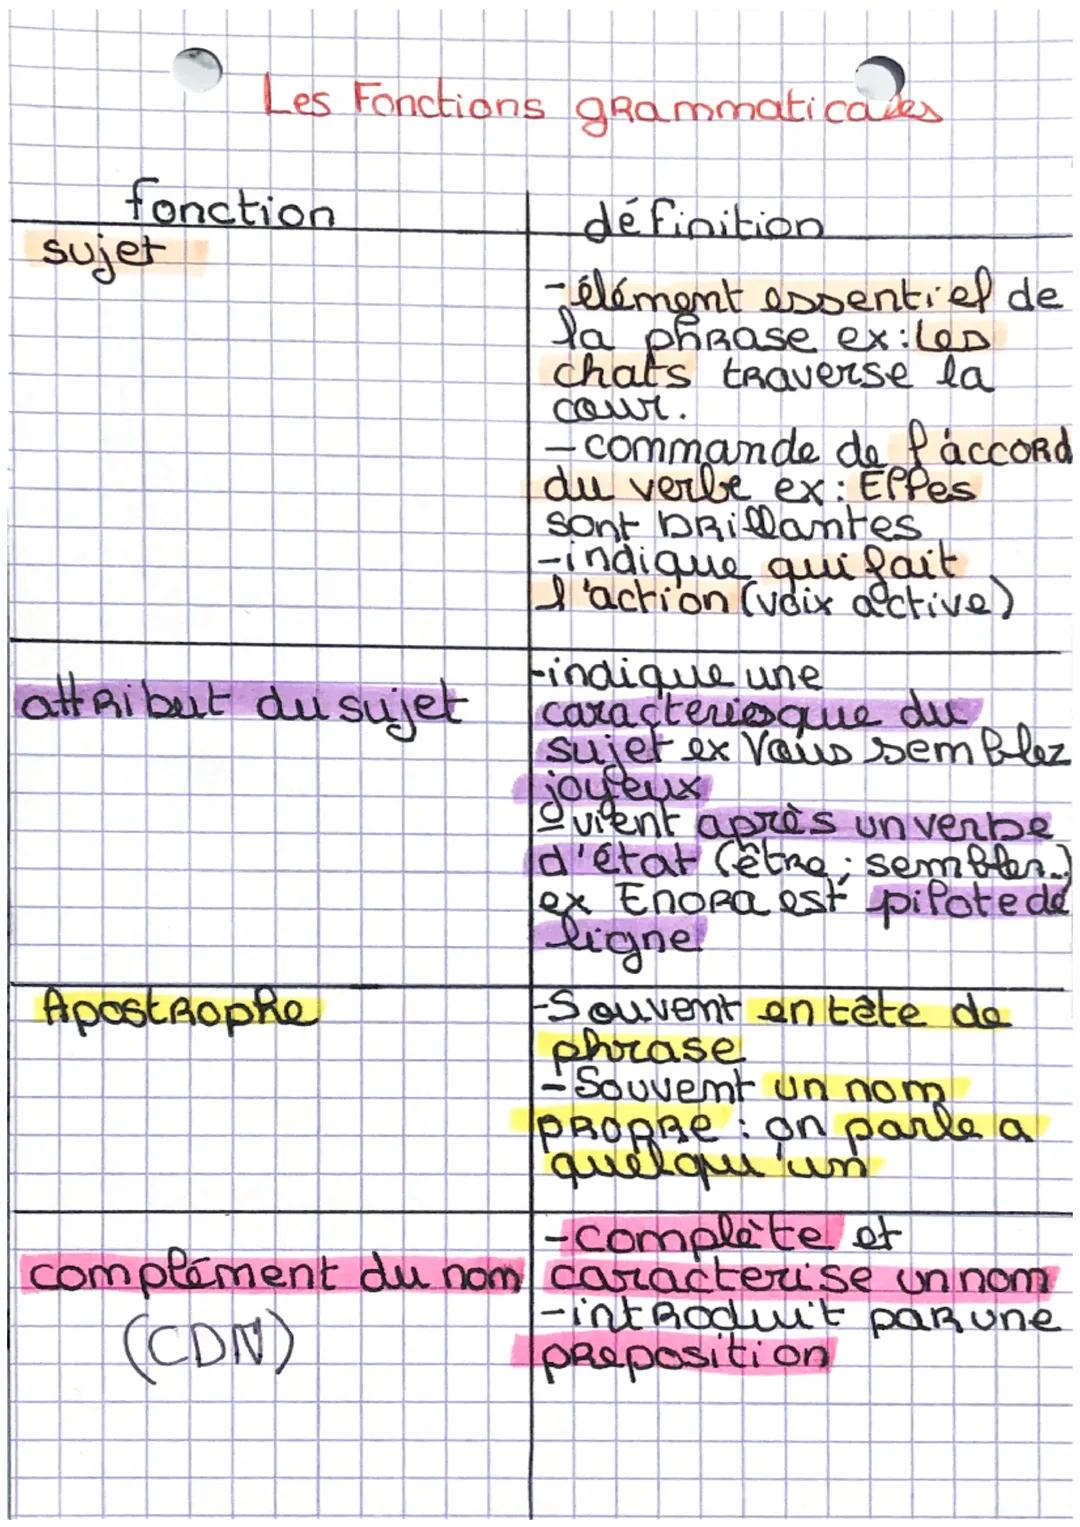 Les Fonctions grammaticales
fonction
définition
sujet
-élément essentiel de
la phrase ex: Les
chats traverse la
cour.
-commande de l'accord
du verbe ex: Elles
sont brillantes
-indique qui fait
l'action (voix active)
attribut du sujet
-indique une
caracteriesque du
sujet ex Vous semblez
joyeux
vient après un verbe
d'état (être; sembler..)
ex Enora est pilote de
ligne
Apostrophe
-Souvent en tête de
phrase
-Souvent un nom
propre : on parle a
quelqu'un
complément du nom
(CDN)
-complète et
caracterise un nom
-introduit par une
preposition